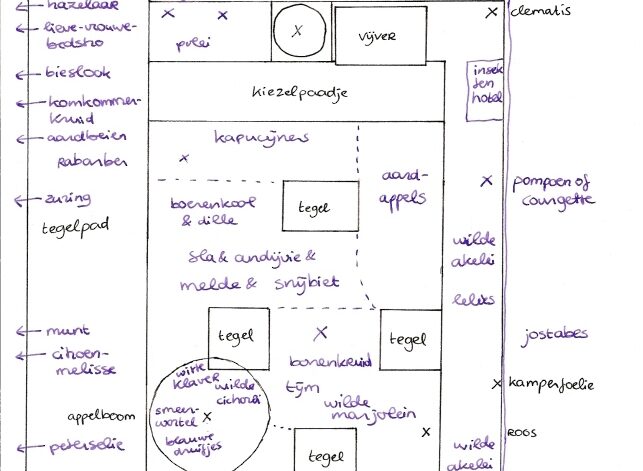 hazelaar
lieve-vrouwe-
bedstro
bieslook
komkommer-
kruid
aardbeien
Rabarber
zuring
tegelpad
munt
citroen-
melisse
appelboom
peterselie
X
X
prei
X
vijver
X
clematis
kiezelpaadje
insek
ten
hotel
kapucijners
X
aard-
appels
X
pompoen of
courgette
boerenkool
& dille
tegel
sla & andijvie &
melde & snijbiet
wilde
akelei
lelies
tegel
X
tegel
bonenkruid
jostabes
witte
klaver
wilde
cichorei
smeer-
wortel
X
blauwe
druifjes
tijm
wilde
marjolein
X
kamperfoelie
X
ROOS
tegel
wilde
akelei